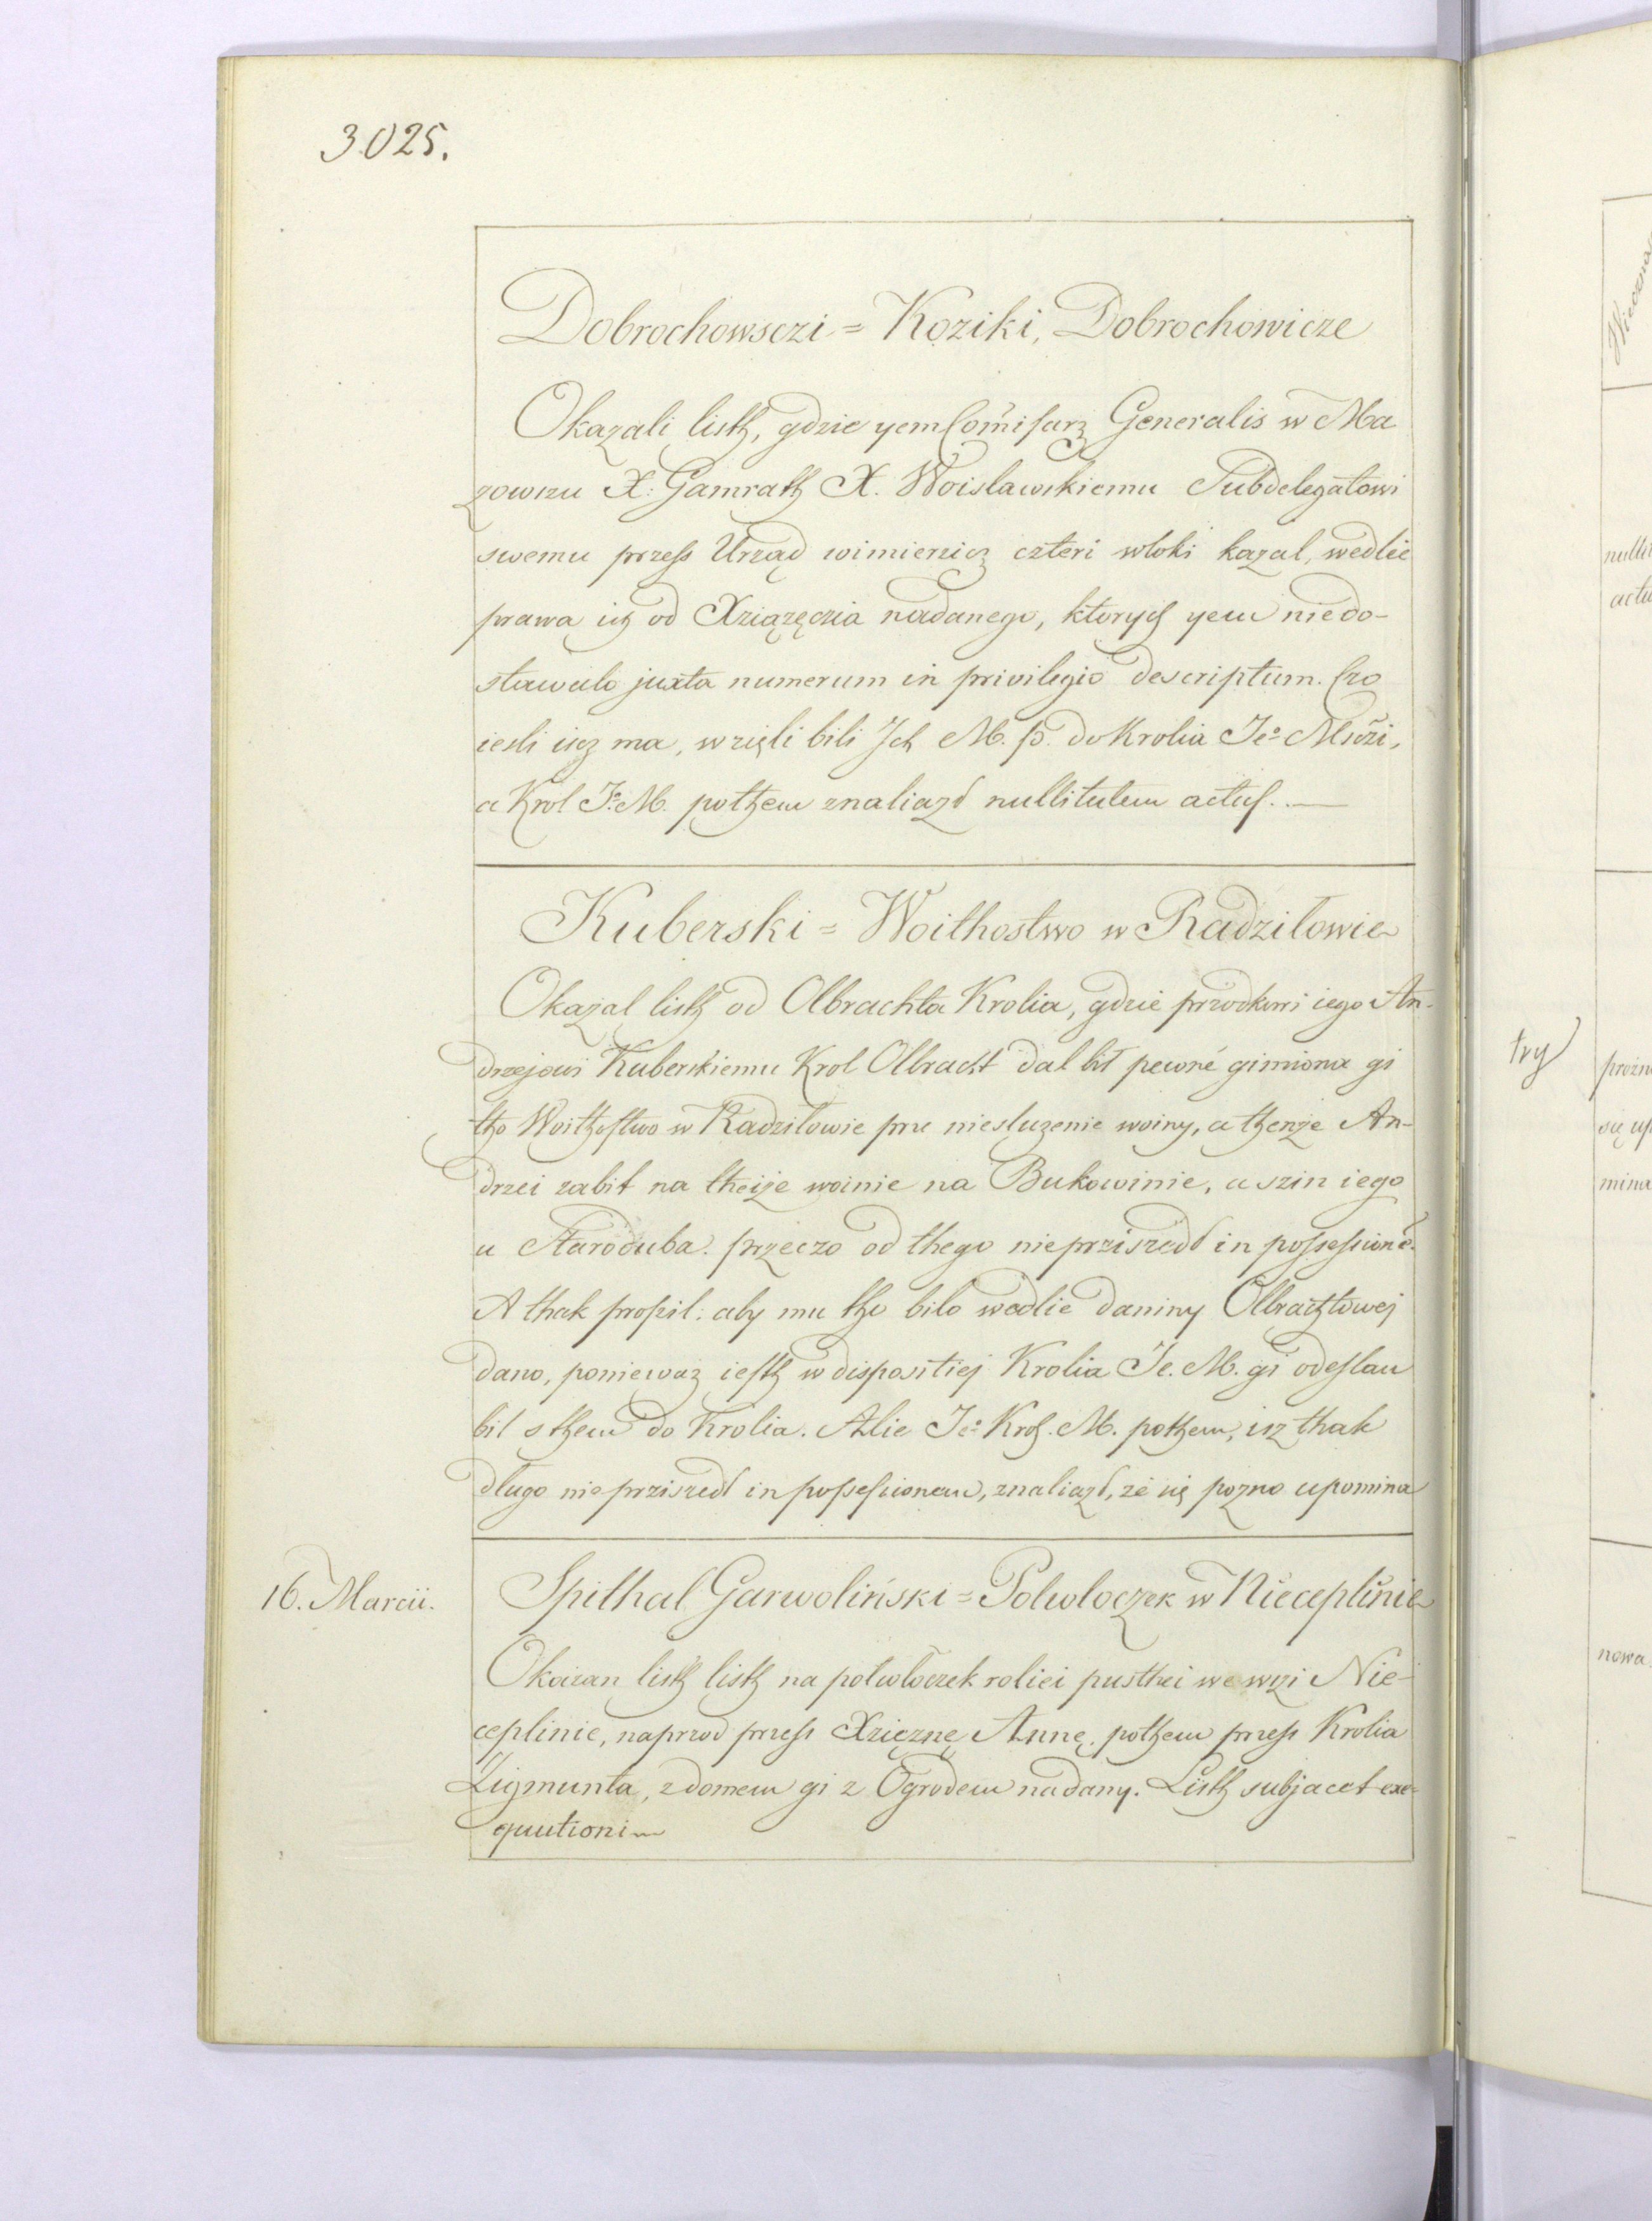 3025.
Dobrochowsczi = Koziki, Dobrochowicze
Okazali listh, gdzie yem Com̃isarz Generalis w Ma
zowszu X. Gamrath X. Woislawskiemu Subdelegatowi
swemu przess Urząd wimierzicz czteri wloki kazal, wedlie
prawa ich od Xziązęczia nadanego, ktorych yem niedo-
stawalo juxta numerum in privilegio descriptum. Czo
iesli iscz ma, wzięli bili Ich M. p. do Krolia Jeº Młsczi,
a Krol Jº M. pothem znaliazd nullitatem actus. —
Kuberski = Woithostwo w Radziłowie
Okazal listh od Olbrachta Krolia, gdzie przodkowi iego An-
drzejowi Kuberskiemu Krol Olbracht dal bił pewne gimiona gi
tho Woithostwo w Radziłowie prze niesluzenie woiny, a thenze An-
drzei zabit na theize woinie na Bukowinie, a szin iego
u Staroduba. przeczo od thego nieprziszedl in possessionẽ.
A thak prosil: aby mu tho bilo wedlie daniny Olbrachtowej
dano, poniewaz iesth w dispositiej Krolia Je. M. gi odeslan
bil s them do Krolia. Alie Jeº Kroł. M. pothem, isz thak
dlugo nieprziszedl in possessionem, znaliazd, ze się pozno upomina
16. Marcii.
Spithal Garwoliński = Polwloczek w Nieceplinie
Okazan listh listh na polwloczek roliei pusthei we wzi Nie-
ceplinie, naprzod przess Xziężnę Annę, pothem przess Krolia
Zigmunta, z domem gi z Ogrodem nadany. Listh subjacet exe-
quutioni
try
nulli
actu
prozn
się up
mina
nowa.